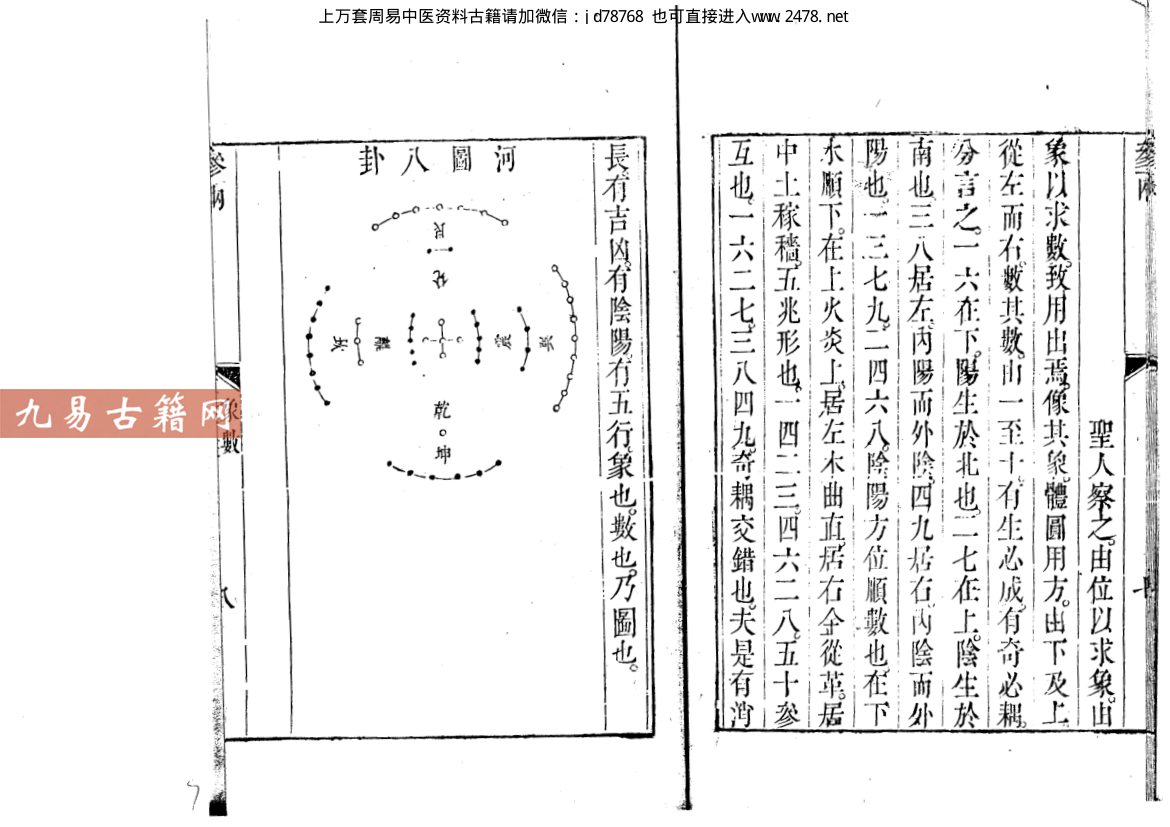 上万套周易中医资料古籍请加微信：jd78768 也可直接进入www.2478.net
聖人察之。由位以求象。由
象以求數。致用出焉。像其象。體圓用方。由下及上。
從左而右。數其數。由一至十。有生必成。有奇必耦。
分言之。一六在下。陽生於北也。二七在上。陰生於
南也。三八居左。內陽而外陰。四九居右。內陰而外
陽也。一三七九。二四六八。陰陽方位順數也。在下
水順下。在上火炎上。居左木曲直。居右金從革。居
中土稼穡。五兆形也。一四二三。四六二八。五十參
互也。一六二七。三八四九。奇耦交錯也。夫是有消
長有吉凶。有陰陽。有五行。象也。數也。乃圖也。
河圖八卦
艮
兌
坎
離
震
巽
乾
坤
參兩
象數
八
九易古籍网